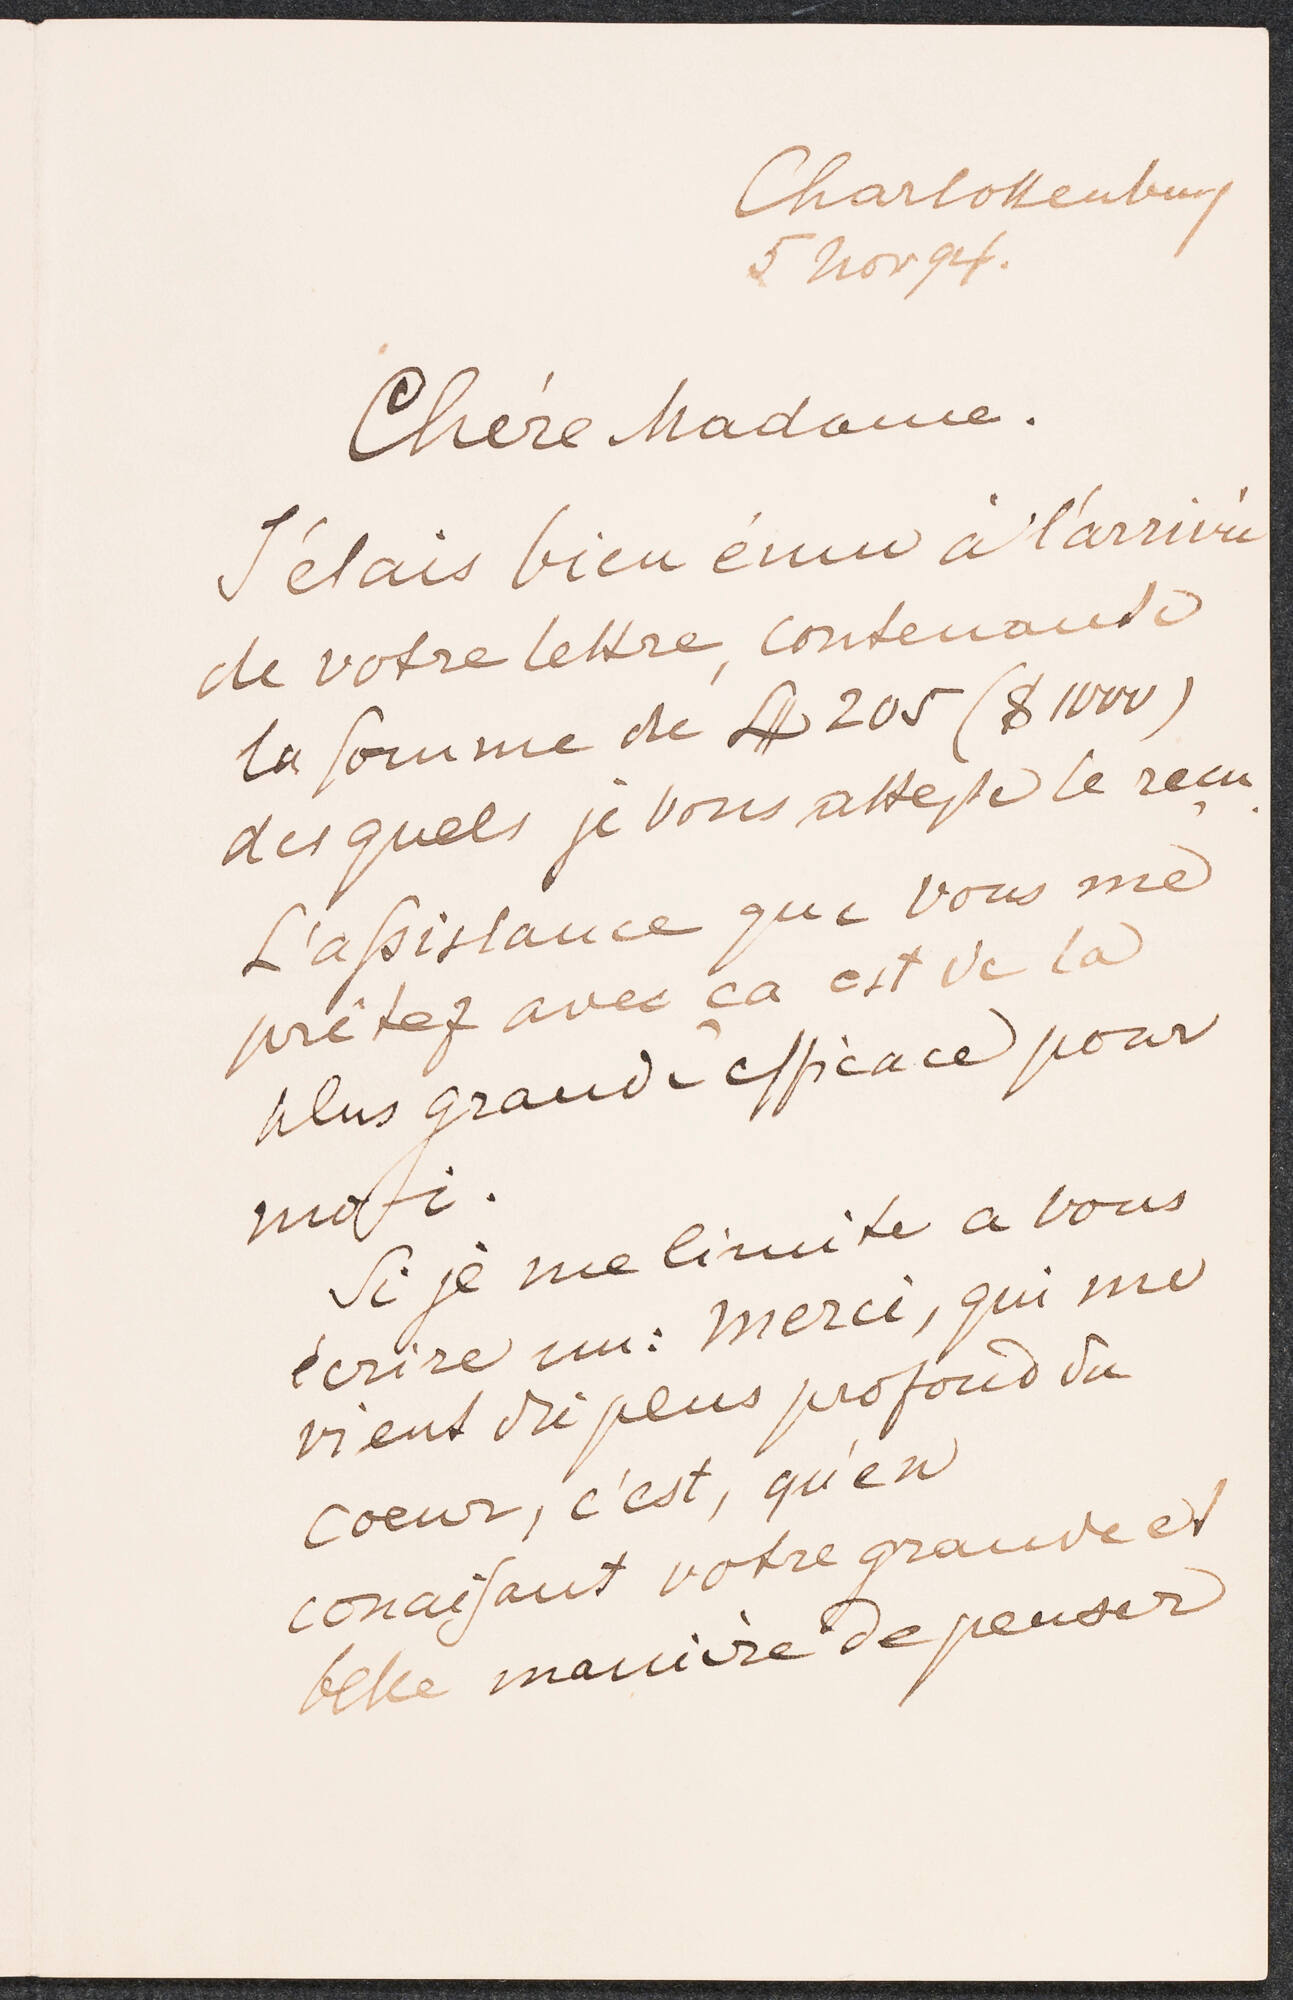 Charlottenburg
5 Nov 94.
Chére Madame.
J'étais bien ému à l'arrivée
de votre lettre, contenante
la somme de £ 205 ($ 1000)
des quels je vous atteste le reçu.
L'assistance que vous me
prêtez avec ça est de la
plus grande efficace pour
moi.
Si je me limite a vous
écrire un: Merci, qui me
vient du plus profond du
coeur, c'est, qu'en
conaissant votre grande et
belle manière de penser